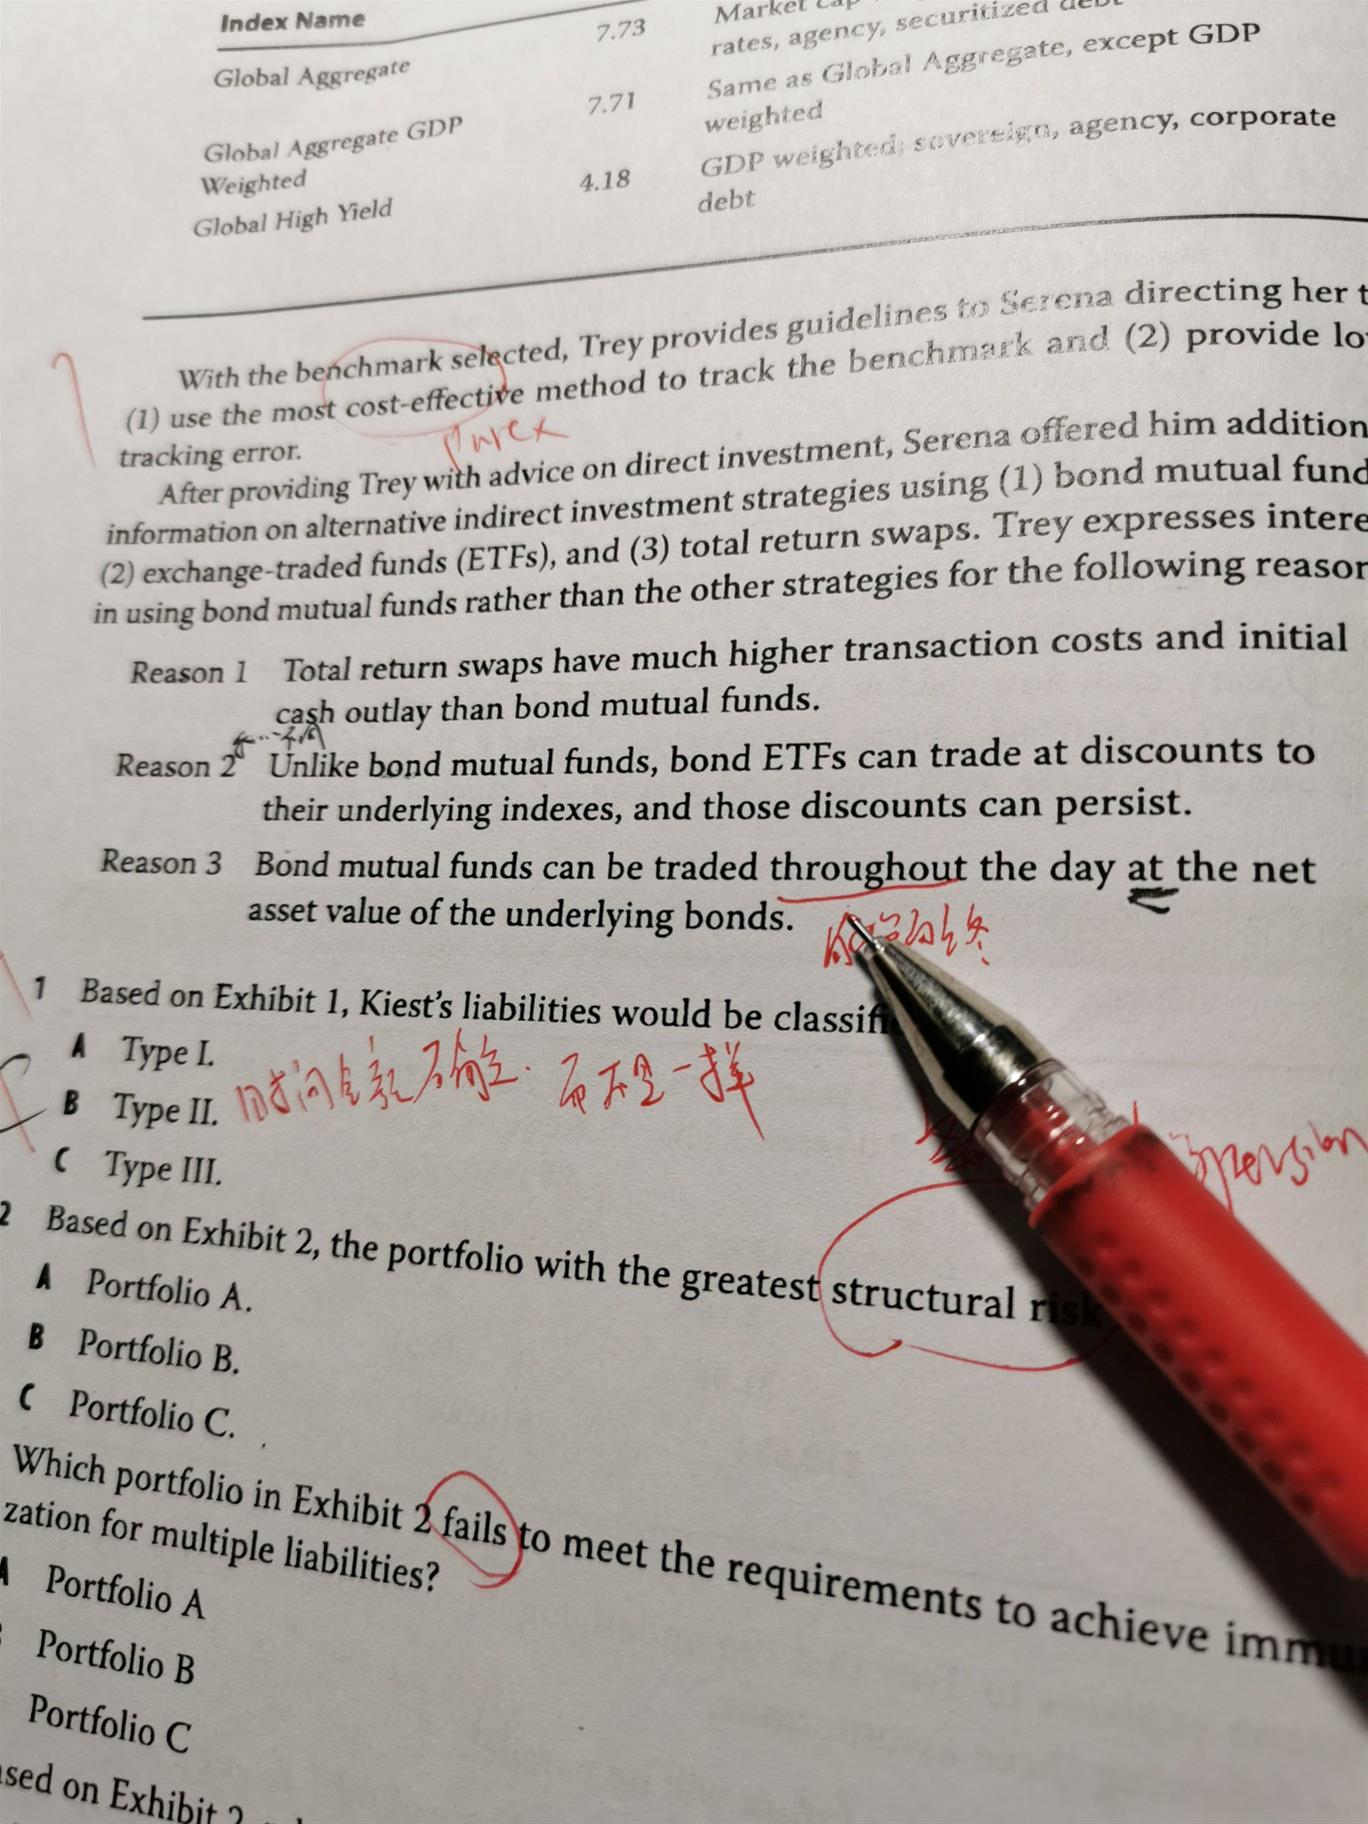 Index Name
Market cap
rates, agency, securitized debt
Global Aggregate 7.73
Same as Global Aggregate, except GDP
weighted
Global Aggregate GDP 7.71
Weighted
GDP weighted; sovereign, agency, corporate
debt
Global High Yield 4.18
With the benchmark selected, Trey provides guidelines to Serena directing her t
(1) use the most cost-effective method to track the benchmark and (2) provide lo
tracking error.
After providing Trey with advice on direct investment, Serena offered him addition
information on alternative indirect investment strategies using (1) bond mutual fund
(2) exchange-traded funds (ETFs), and (3) total return swaps. Trey expresses intere
in using bond mutual funds rather than the other strategies for the following reason
Reason 1 Total return swaps have much higher transaction costs and initial
cash outlay than bond mutual funds.
Reason 2 Unlike bond mutual funds, bond ETFs can trade at discounts to
their underlying indexes, and those discounts can persist.
Reason 3 Bond mutual funds can be traded throughout the day at the net
asset value of the underlying bonds.
1 Based on Exhibit 1, Kiest's liabilities would be classifi
A Type I.
B Type II.
时间金额不确定
而不是一样
C Type III.
2 Based on Exhibit 2, the portfolio with the greatest structural risk
A Portfolio A.
B Portfolio B.
C Portfolio C.
Which portfolio in Exhibit 2 fails to meet the requirements to achieve immu
zation for multiple liabilities?
A Portfolio A
Portfolio B
Portfolio C
ased on Exhibit 2